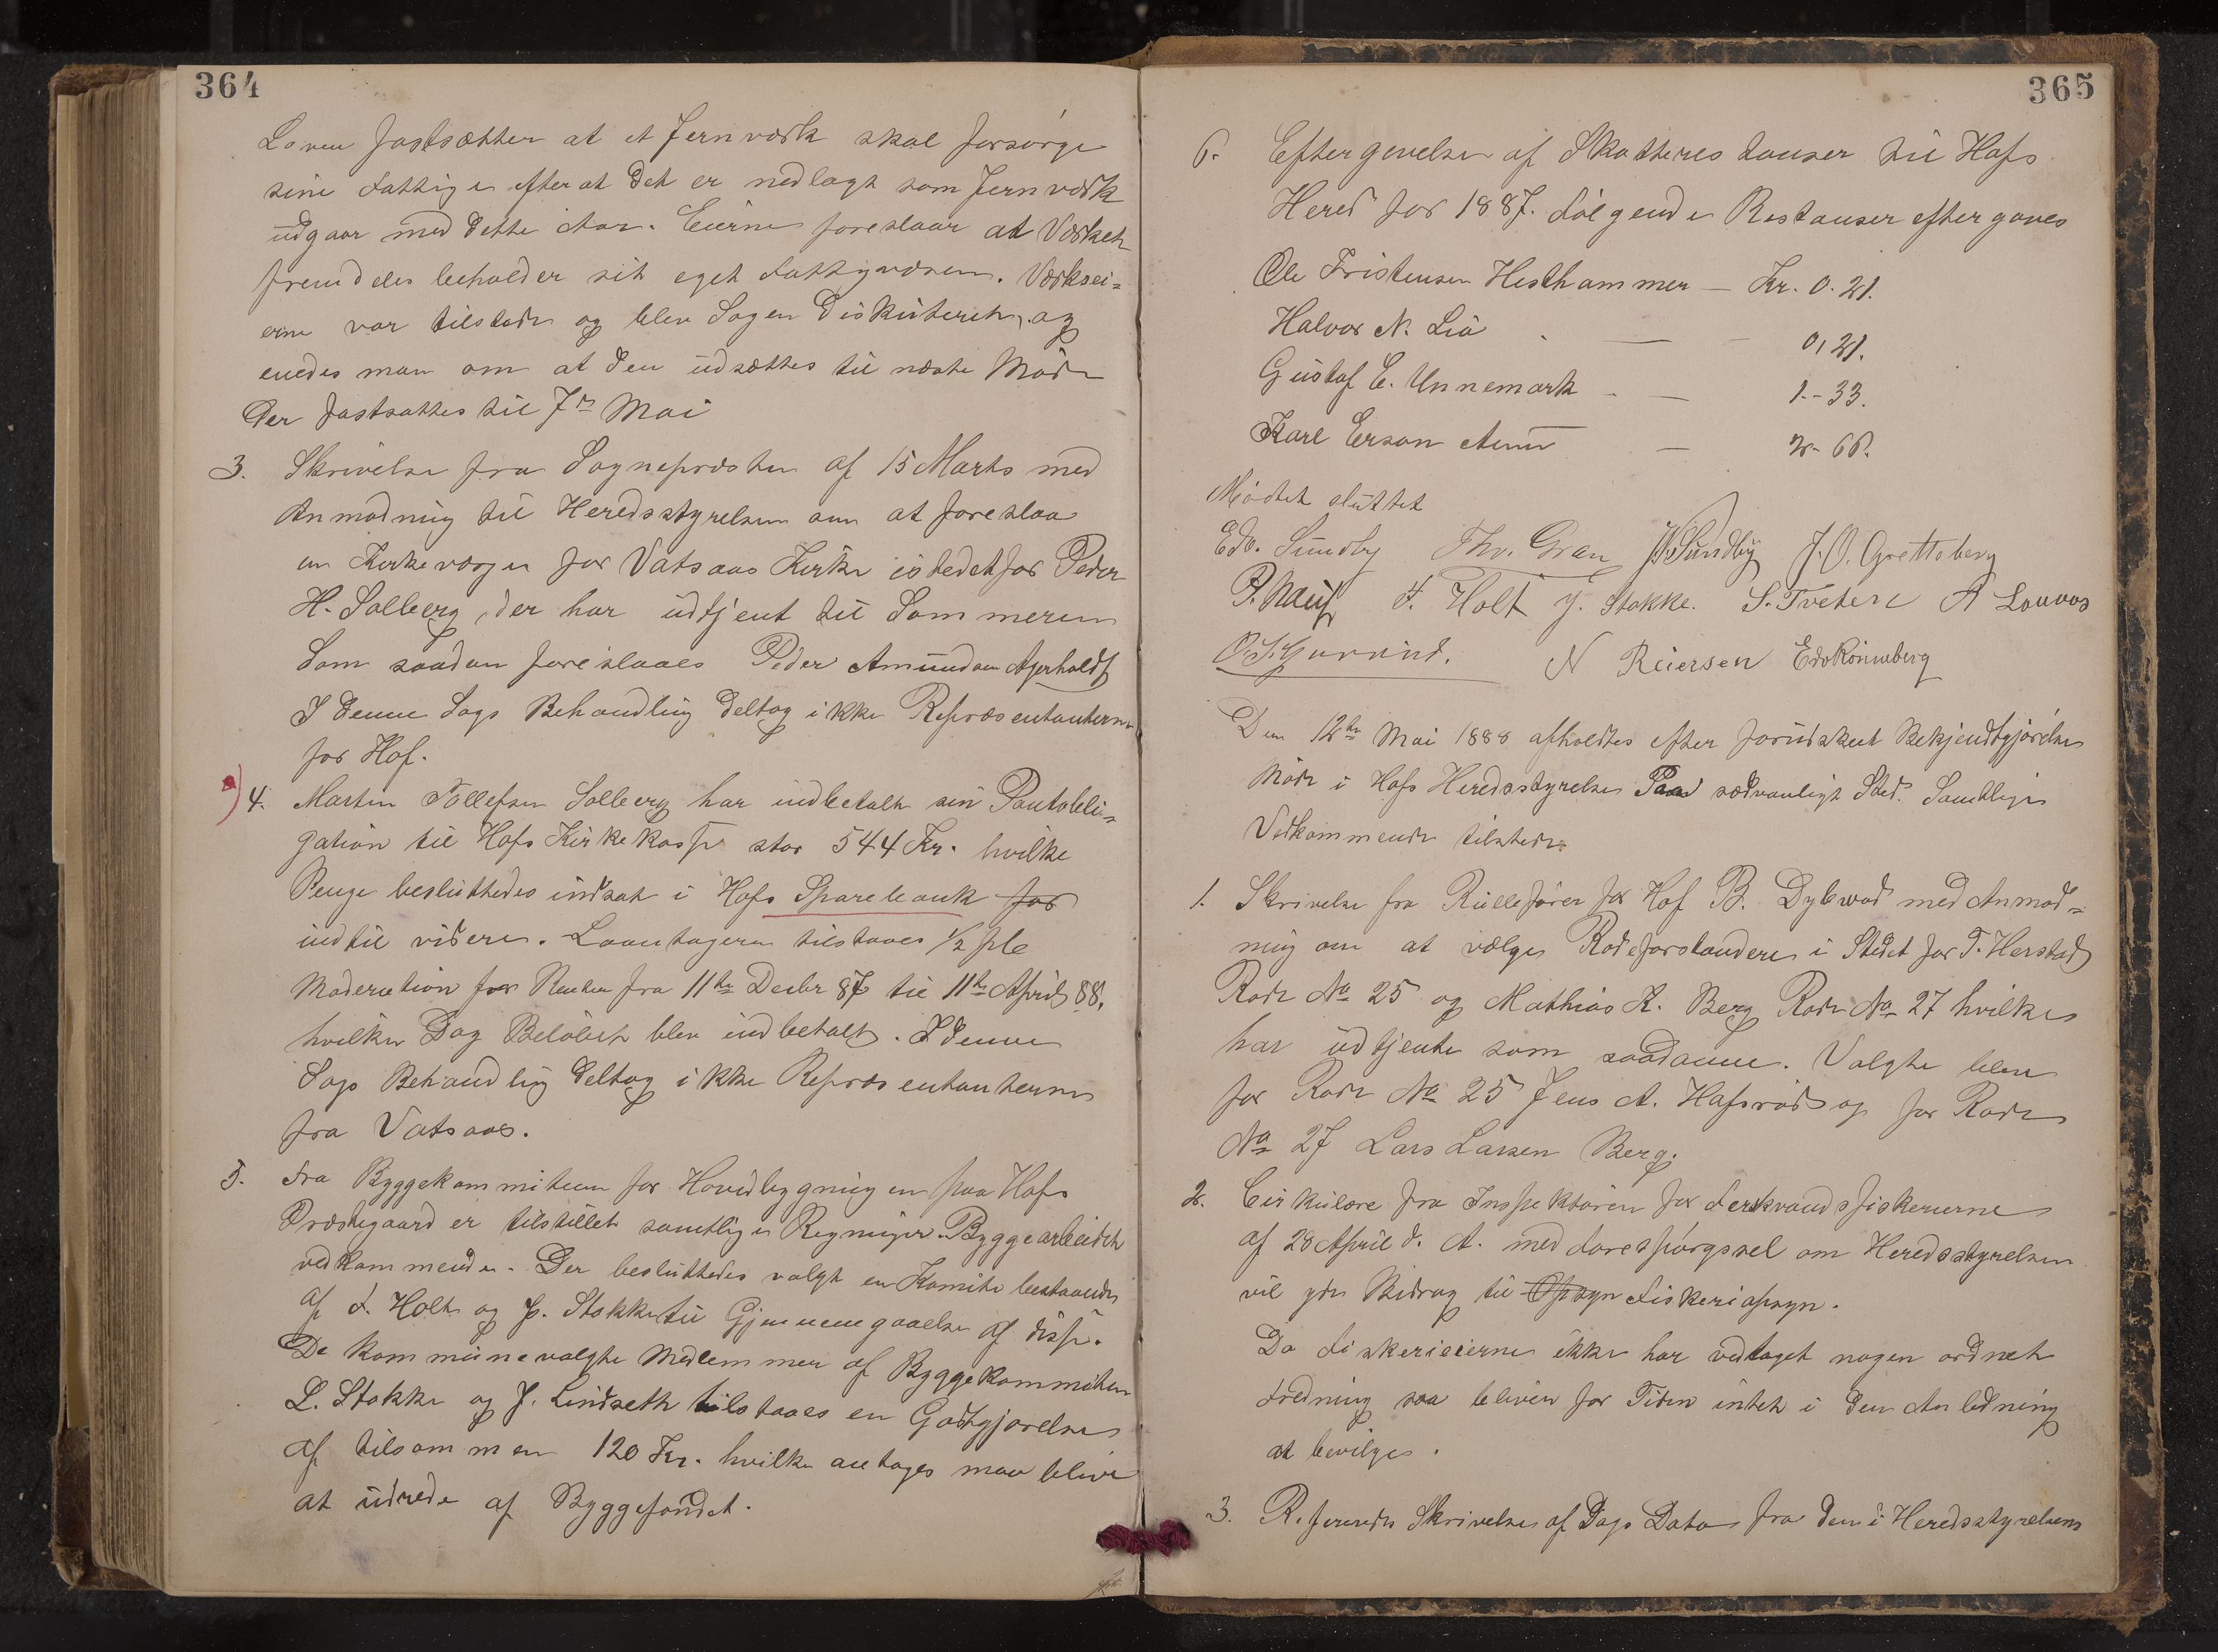 364
Loven fastsætter at et Jernværk skal forsørge
sine Fattige efterat det er nedlagt som Jernværk
udgaar med dette Aar. Eierne foreslaar at Værket
fremdeles beholder sit eget Fattigvæsen. Værksei=
erne var tilstede og blev Sagen diskuteret, og
enedes man om at den udsættes til næste Møde
der fastsattes til 7de Mai
3. Skrivelse fra Sognepræsten af 15 Marts med
Anmodning til Heredsstyrelsen om at foreslaa
en Kirkeværge for Vatsaas Kirke istedetfor Peder
H. Solberg, der har udtjent til Sommeren
Som saadan foreslaaes Peder Amundsen Agerholdt
I denne Sags Behandling deltog ikke Repræsentanterne
for Hof.
4. Martin Tollefsen Solberg har indbetalt sin Pantobli=
gation til Hofs Kirkekasse stor 544 Kr. hvilke
Penge besluttedes indsat i Hofs Sparebank for
indtil videre. Laantageren tilstaaes 1/2 pCt
Moderation for Renten fra 11te Decbr 87 til 11te April 88,
hvilken Dag Beløbet blev indbetalt. I denne
Sags Behandling deltog ikke Repræsentanterne
fra Vatsaas.
5. Fra Byggekommiteen for Hovedbygningen paa Hofs
Præstegaard er tilstillet samtlige Regninger Byggearbeidet
vedkommende. Der besluttedes valgt en Komite bestaaende
af F. Holt og J. Stokke til Gjennemgaaelse af disse.
De kommunevalgte Medlemmer af Byggekommiteen
L. Stokke og J. Lindseth tilstaaes en Godtgjørelse
af tilsammen 120 Kr. hvilke antages maa blive
at udrede af Byggefondet.
365
6. Eftergivelse af Skatterestanser til Hofs
Hered for 1887. Følgende Restanser eftergaves
Ole Kristensen Hesthammer — Kr. 0.21.
Halvor N. Lia — 0,21.
Gustaf E. Unnemark — 1.-33.
Karl Erson — 2-66.
Mødet sluttet
Edv. Sundby Thv. Gran Sundby J. O. Gretteberg
F. Holt J. Stokke. S. Tveten
N Reiersen
Den 12te Mai 1888 afholdtes efter forudskeet Bekjendtgjørelse
Møde i Hofs Heredsstyrelse Paa sædvanligt Sted. Samtlige
Vedkommende tilstede.
1. Skrivelse fra Rullefører for Hof B. Dylwad med Anmod=
ning om at vælge Rodeforstandere i Stedet for T. Herstad
Rode No 25 og Mathias K. Berg Rode No 27 hvilke
har udtjente som saadanne. Valgte blev
for Rode No 25 Jens A. Hafsrød og for Rode
No 27 Lars Larsen Berg.
2. Cirkulære fra Inspektøren for Ferskvandsfiskerierne
af 28 April d. A. med Forespørgssel om Heredsstyrelsen
vil yde Bidrag til Opsyn Fiskeriopsyn.
Da Fiskerieierne ikke har vedtaget nogen ordnet
Fredning saa bliver for Tiden intet i den Anledning
at bevilge.
3. Refereredes Skrivelse af Dags Dato fra den i Heredsstyrelsens